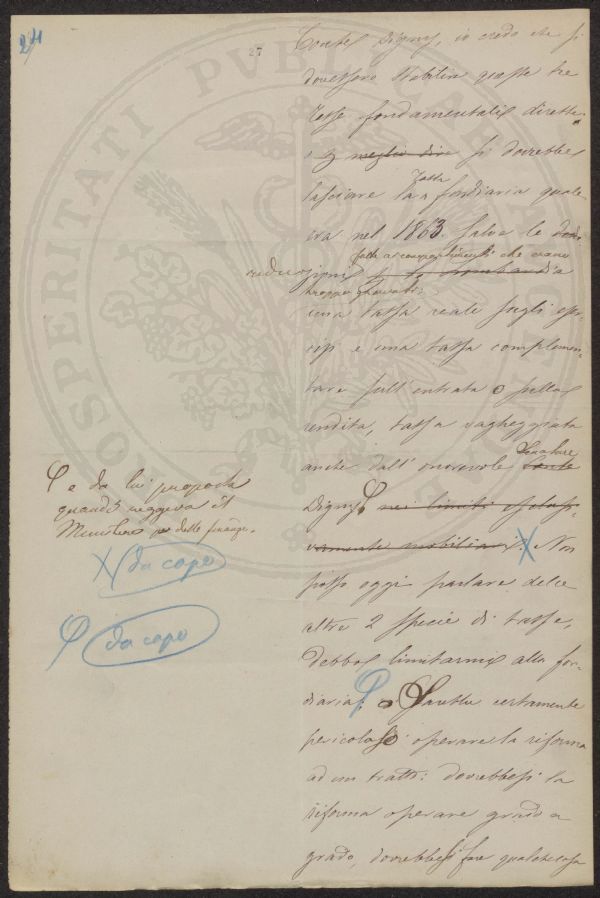 24
27
Conte Digny, io credo che si
dovessero stabilire queste tre
tasse fondamentali dirette.
o meglio dire si dovrebbe
tassa
lasciare la fondiaria quale
era nel 1863. Salve le
fatte ai compartimenti che erano
reduzioni
troppo gravati.
una tassa reale sugli eser-
cisi e una tassa complemen-
tare sull'entrata o sulla
rendita, tassa vagheggiata
Senatore
anche dall'onorevole Conte
Digny nei limiti esclusi-
vamente mobiliari. Non
posso oggi parlare delle
altre 2 specie di tasse,
debbo limitarmi alla fon-
diaria. Sarebbe certamente
pericoloso operare la riforma
ad un tratto: dovrebbesi la
riforma operare grado a
grado, dovrebbesi fare qualche cosa
e da lui proposta
quando reggeva il
Ministero delle finanze.
da capo
da capo
PROSPERITATI PVBLICAE